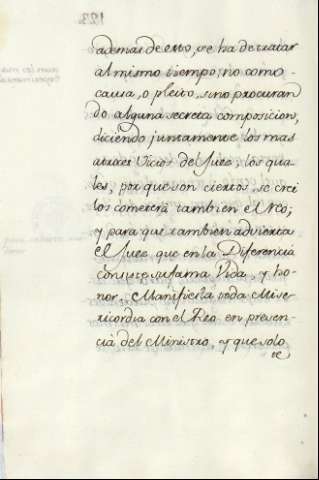 123.
ademas de esto, se ha de tratar
al mismo tiempo, no como
causa, o pleito, sino procuran
do alguna secreta composicion,
diciendo juntamente los mas
atroces Vicios del Juez, los qua-
les, por que son ciertos, se cree
los cometerá tambien el Reo;
y para que tambien advierta
el Juez que en la Diferencia
consiste su fama Vida, y ho-
nor. Manifiesta toda Mise-
ricordia con el Reo en presen-
cia del Ministro, y que solo
se